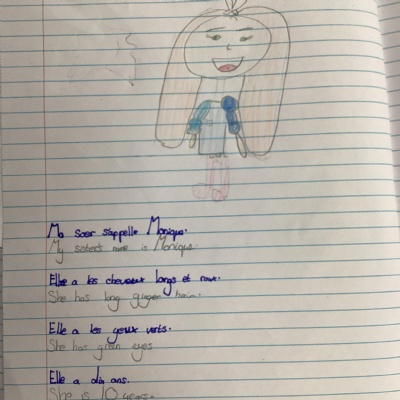 Ma soer s'appelle Monique.
My sister's name is Monique.
Elle a les cheveux longs et roux.
She has long ginger hair.
Elle a les yeux verts.
She has green eyes
Elle a dix ans.
She is 10 years.